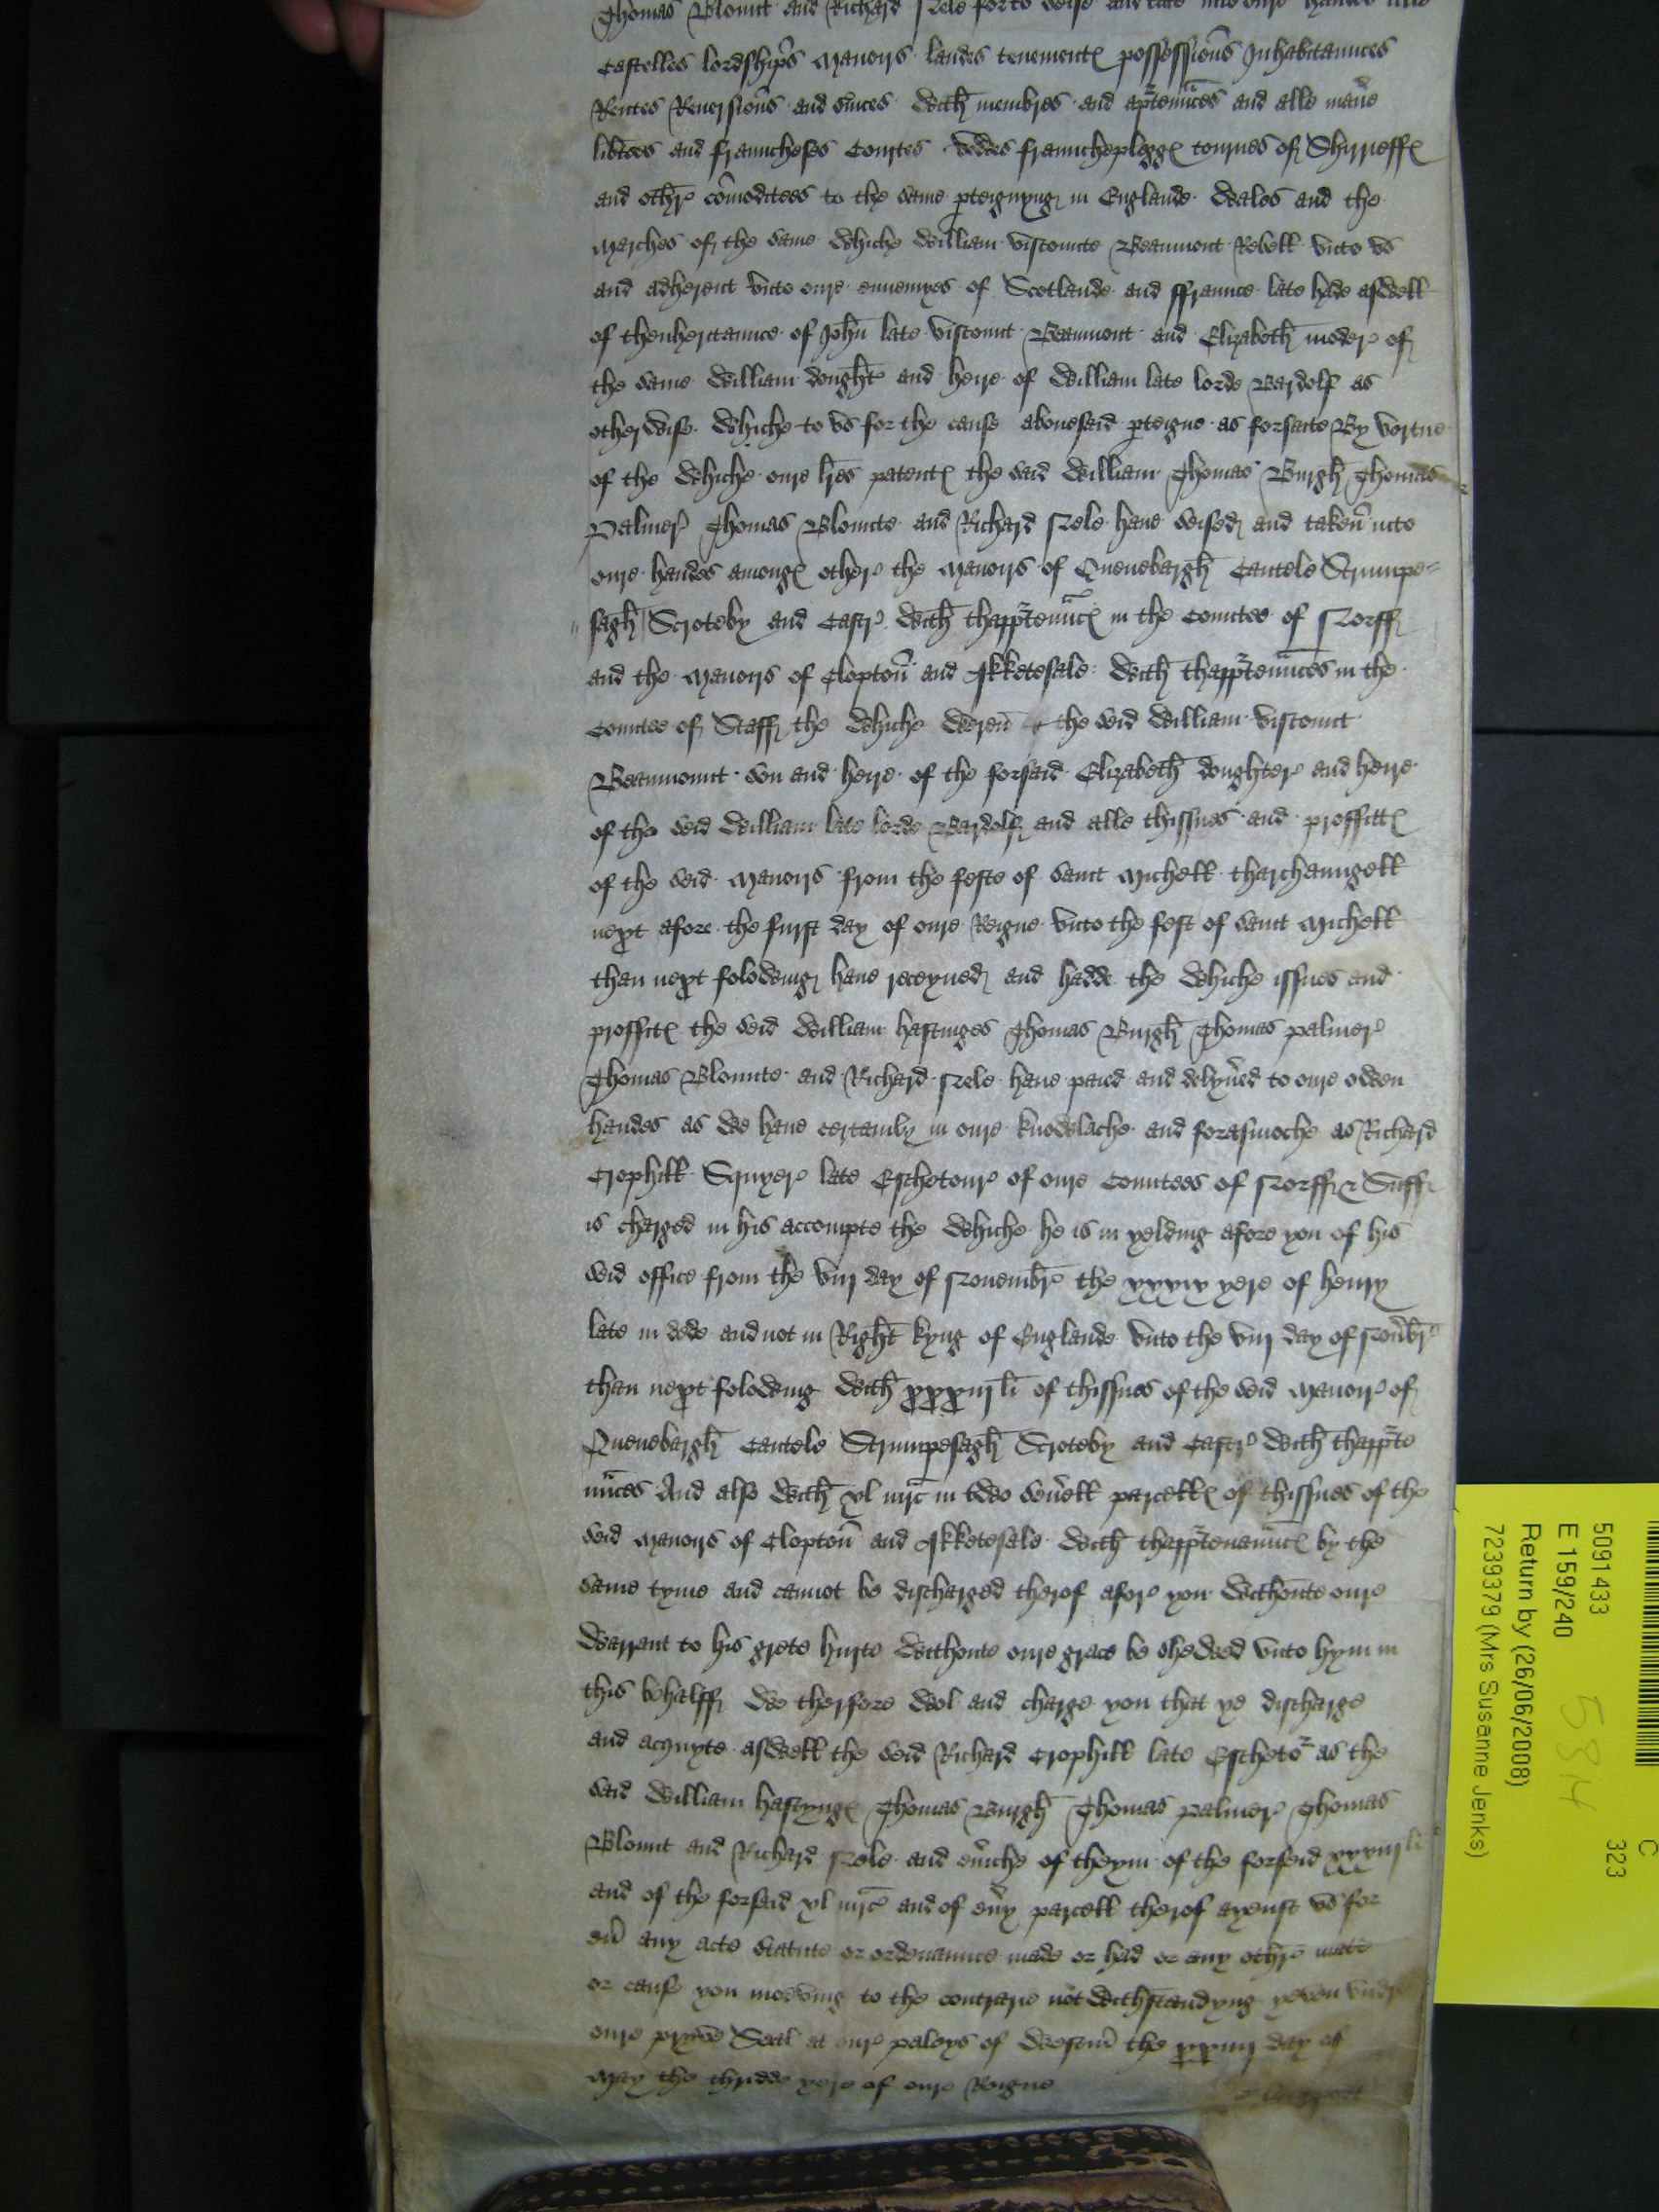 Thomas Blount and Richard Nele forto seise and take into oure handes alle
Castelles lordships Manoirs landes tenementes possessions Inhabitaunces
Rentes Reversions and svices With membres and aptennces and alle manere
libtees and fraunchoses Courtes vewes fraunchepleggs tournes of Shirreffs
and othre comoditees to the same pteignyng in Englande Wales and the
Marches of the same Whiche William viscounte Beaumont Rebell vnto vs
and adherent vnto oure ennemyes of Scotlande and ffraunce late hade aswell
of thenheritaunce of John late viscount Beaumont and Elizabeth moder of
the same William dought and heire of William late lorde Bardolf as
otherWise Whiche to vs for the cause abouesaid pteigne as forfaite By vertue
of the Whiche oure lres patentes the said William Thomas Burgh Thomas
Palmer Thomas Blounte and Richard Nele haue seised and taken into
oure handes amonges other the Manoirs of Quenebargh Cantele Strumpe
sagh Scroteby and Castr With thapptennces in the Countee of Norff
and the Manoirs of Clopton and Ikketesale With thapptennces in the
Countee of Staff the Whiche Weren the seid William Viscount
Beaumount son and heire of the forsaid Elizabeth doughter and heire
of the seid William late lorde Bardolf and alle thissues and proffittes
of the seid Manoirs from the feste of saint Michell tharchaungell
next afore the furst day of oure Reigne vnto the fest of saint Michell
than next foloWing haue receyued and hadde the Whiche issues and
proffites the seid William hastinges Thomas Burgh Thomas palmer
Thomas Blounte and Richard Nele haue paied and delyued to oure oWen
handes as We haue certainly in oure knoWelache and forasmoche as Richard
Crophill Squyer late Eschetour of oure Countees of Norff & Suff
is charged in his accompte the Whiche he is in yelding afore you of his
seid office from the viij day of Nouembr the xxxix yere of henry
late in dede and not in Right kyng of Englande vnto the viij day of Novembr
than next foloWing With xxxiij li of thissues of the seid Manoirs of
Quenebargh Cantele Strumpesagh Scroteby and Castr With thappte
nnces And also With xl mrc in tWeo seuell parcelles of thissues of the
seid Manoirs of Clopton and Ikketesale With thapptenauncs by the
same tyme and cannot be discharged therof afore you Withoute oure
Warrant to his grete hurte Withoute oure grace be sheWed vnto hym in
this behalff We therfore Wol and charge you that ye discharge
and acquyte asWell the seid Richard Crophill late Eschetor as the
said William hastynges Thomas Burgh Thomas palmer Thomas
Blount and Richard Nele and eueriche of theym of the forseid xxxiij li
and of the forsaid xl mrc and of euy parcell therof ayenst vs for
eu any acte statute or ordenaunce made or had or any othre mate
or cause you moeving to the contrarie not Withstandyng yeven vndre
oure prive Seal at oure paleys of Westm the xxiiij day of
May the thridde yere of oure Reigne
5091433
E 159/240
Return by (26/06/2008)
7239379 (Mrs Susanne Jenks)
C
323
5814